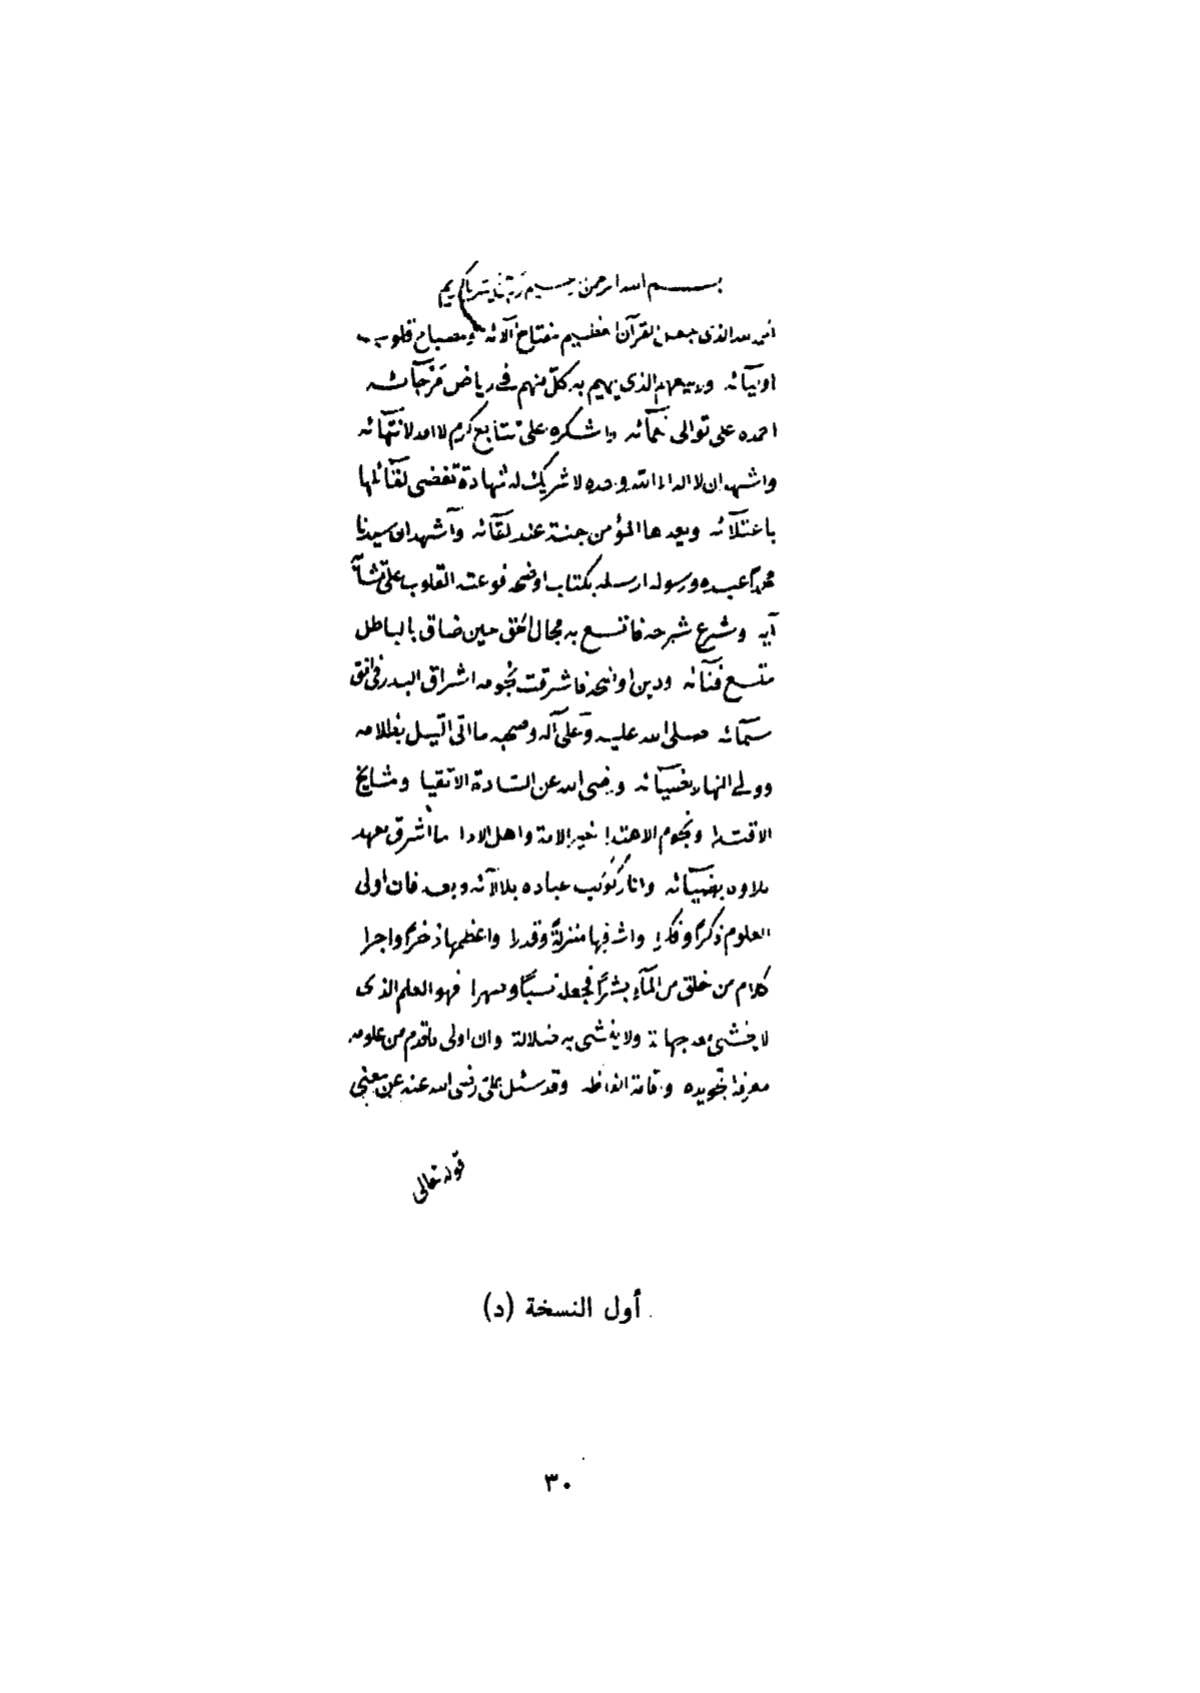 بسم الله الرحمن الرحيم رب يسر يا كريم
الحمد لله الذى جعل القرآن العظيم مفتاح آلائه ومصباح قلوب
اوليائه وربيعهم الذى يهيم به كل منهم فى رياض برحائه
احمده على توالى نعمآئه واشكره على تتابع كرم لا امد لانتهائه
واشهد ان لا اله الا الله وحده لا شريك له شهادة تفضى لقائلها
باعتلآئه ويعدها المؤمن جنة عند لقآئه وآشهد ان سيدنا
محمدا عبده ورسوله ارسله بكتاب اوضحه فوعته القلوب على
آيه وشرع شرحه فاتسع به مجال الحق حين ضاق بالباطل
متسع فنآئه ودين اوضحه فاشرقت نجومه اشراق البدر فى افق
سمآئه صلى الله عليه وعلى آله وصحبه ما اتى الليل بظلامه
وولى النهار بضيآئه ورضى الله عن السادة الاتقيا ومشايخ
الاقتدا ونجوم الاهتدا خير الامة واهل الادا ما اشرق معهد
تلاوة بضيآئه وانار كوكب عبادة بلالآئه وبعد فان اولى
العلوم ذكرا وفكرا واشرفها منزلة وقدرا واعظمها ذخرا واجرا
كلام من خلق من المآء بشرا فجعله نسبا وصهرا فهو العلم الذى
لا يخشى معه جهالة ولا يغشى به ضلالة وان اولى ما قدم من علومه
معرفة تجويده واقامة الفاظه وقد سئل على رضى الله عنه عن معنى
قوله تعالى
أول النسخة (د)
٣٠